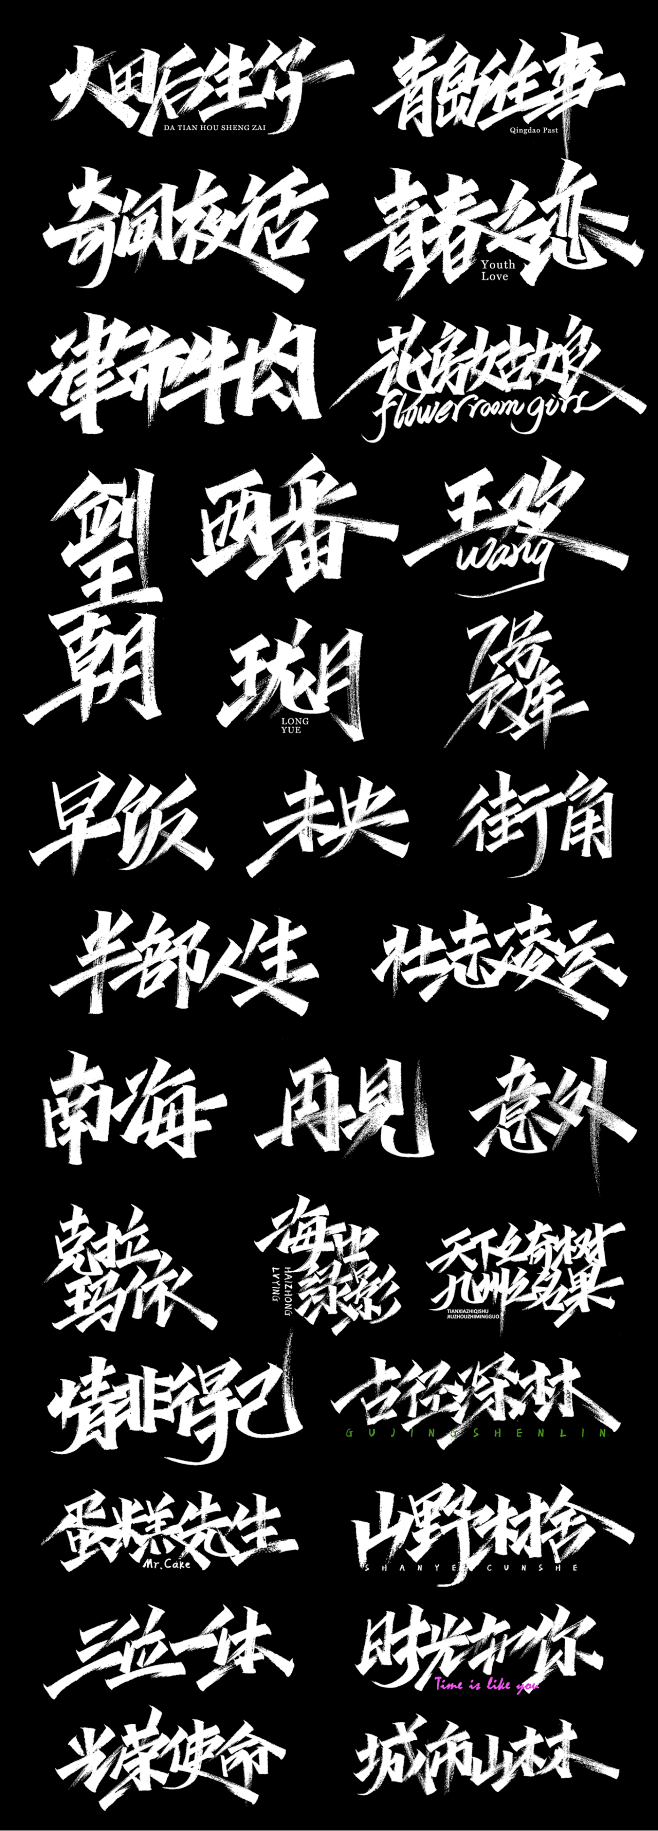 大田后生仔
DA TIAN HOU SHENG ZAI
青岛往事
Qingdao Past
奇闻夜话
青春之恋
Youth
Love
津市牛肉
花房姑娘
flower room girl
剑王朝
西番
王欢
wang
珑月
LONG
YUE
7号
衣库
早饭
未央
街角
半部人生
壮志凌云
南海
再見
意外
克拉
玛依
海中
绿影
HAIZHONG
LVYING
天下之奇树
九州之名果
TIANXIAZHIQISHU
JIUZHOUZHIMINGGUO
情非得已
古径深林
GUJINGSHENLIN
蛋糕先生
Mr.Cake
山野村舍
SHANYECUNSHE
三位一体
时光如你
Time is like you
光荣使命
城市山林